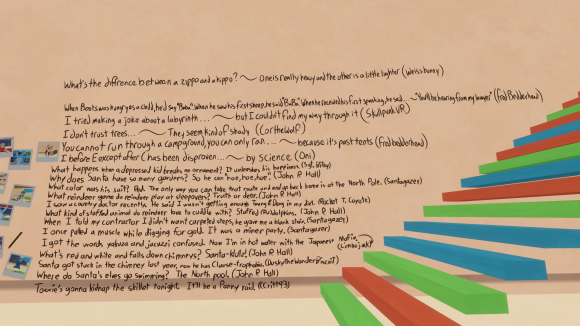 What's the diffrence between a zippo and a hippo? ~ one is really heavy and the other is a little lighter (Weiss bunny)
When Boots was hungry as a child, he'd say "Baba". When he saw his first sheep, he said "BaBa". When he received his first speaking, he said... ~ "You'll be hearing from my lawyer" (Fred Bedderhead)
I tried making a joke about a labyrinth... ~ but I couldn't find my way through it (SkullpunkVR)
I don't trust trees... ~ They seem kind of shady (CorTheWolf)
You cannot run through a campground, you can only ran... ~ because it's past tents (Fred bedderhead)
I before E except after C has been disproven... ~ by science (Oni)
What happens when a depressed kid breaks an ornament? It unleashes his happiness. (Sgt. Billby)
Why does Santa have so many gardens? So he can "hoe, hoe, hoe" (John P. Hall)
What color was his suit? Red. The only way you can take that route and end up back home is at the North Pole. (Santagazer)
What reindeer game do reindeer play at sleepovers? Truth or deer. (John P. Hall)
I saw a country doctor recently. He said I wasn't getting enough in my diet. (Rocket T. Coyote)
What kind of stuffed animal do reindeer love to cuddle with? Stuffed Rudolphins. (John P. Hall)
When I told my contractor I didn't want carpeted steps, he gave me a blank stair. (Santagazer)
I once pulled a muscle while digging for gold. It was a miner party. (Santagazer)
I got the words yakuza and jacuzzi confused. Now I'm in hot water with the Japanese Mafia. (Limbojak)
What's red and white and falls down chimneys? Santa-klutz! (John P. Hall)
Santa got stuck in the chimney last year, now he has Clause-trophobia. (DustytheWonderBiscuit)
Where do Santa's elves go swimming? The North pool. (John P. Hall)
Toxxie's gonna kidnap the skillet tonight. It'll be a Panny raid. (KCritt93)